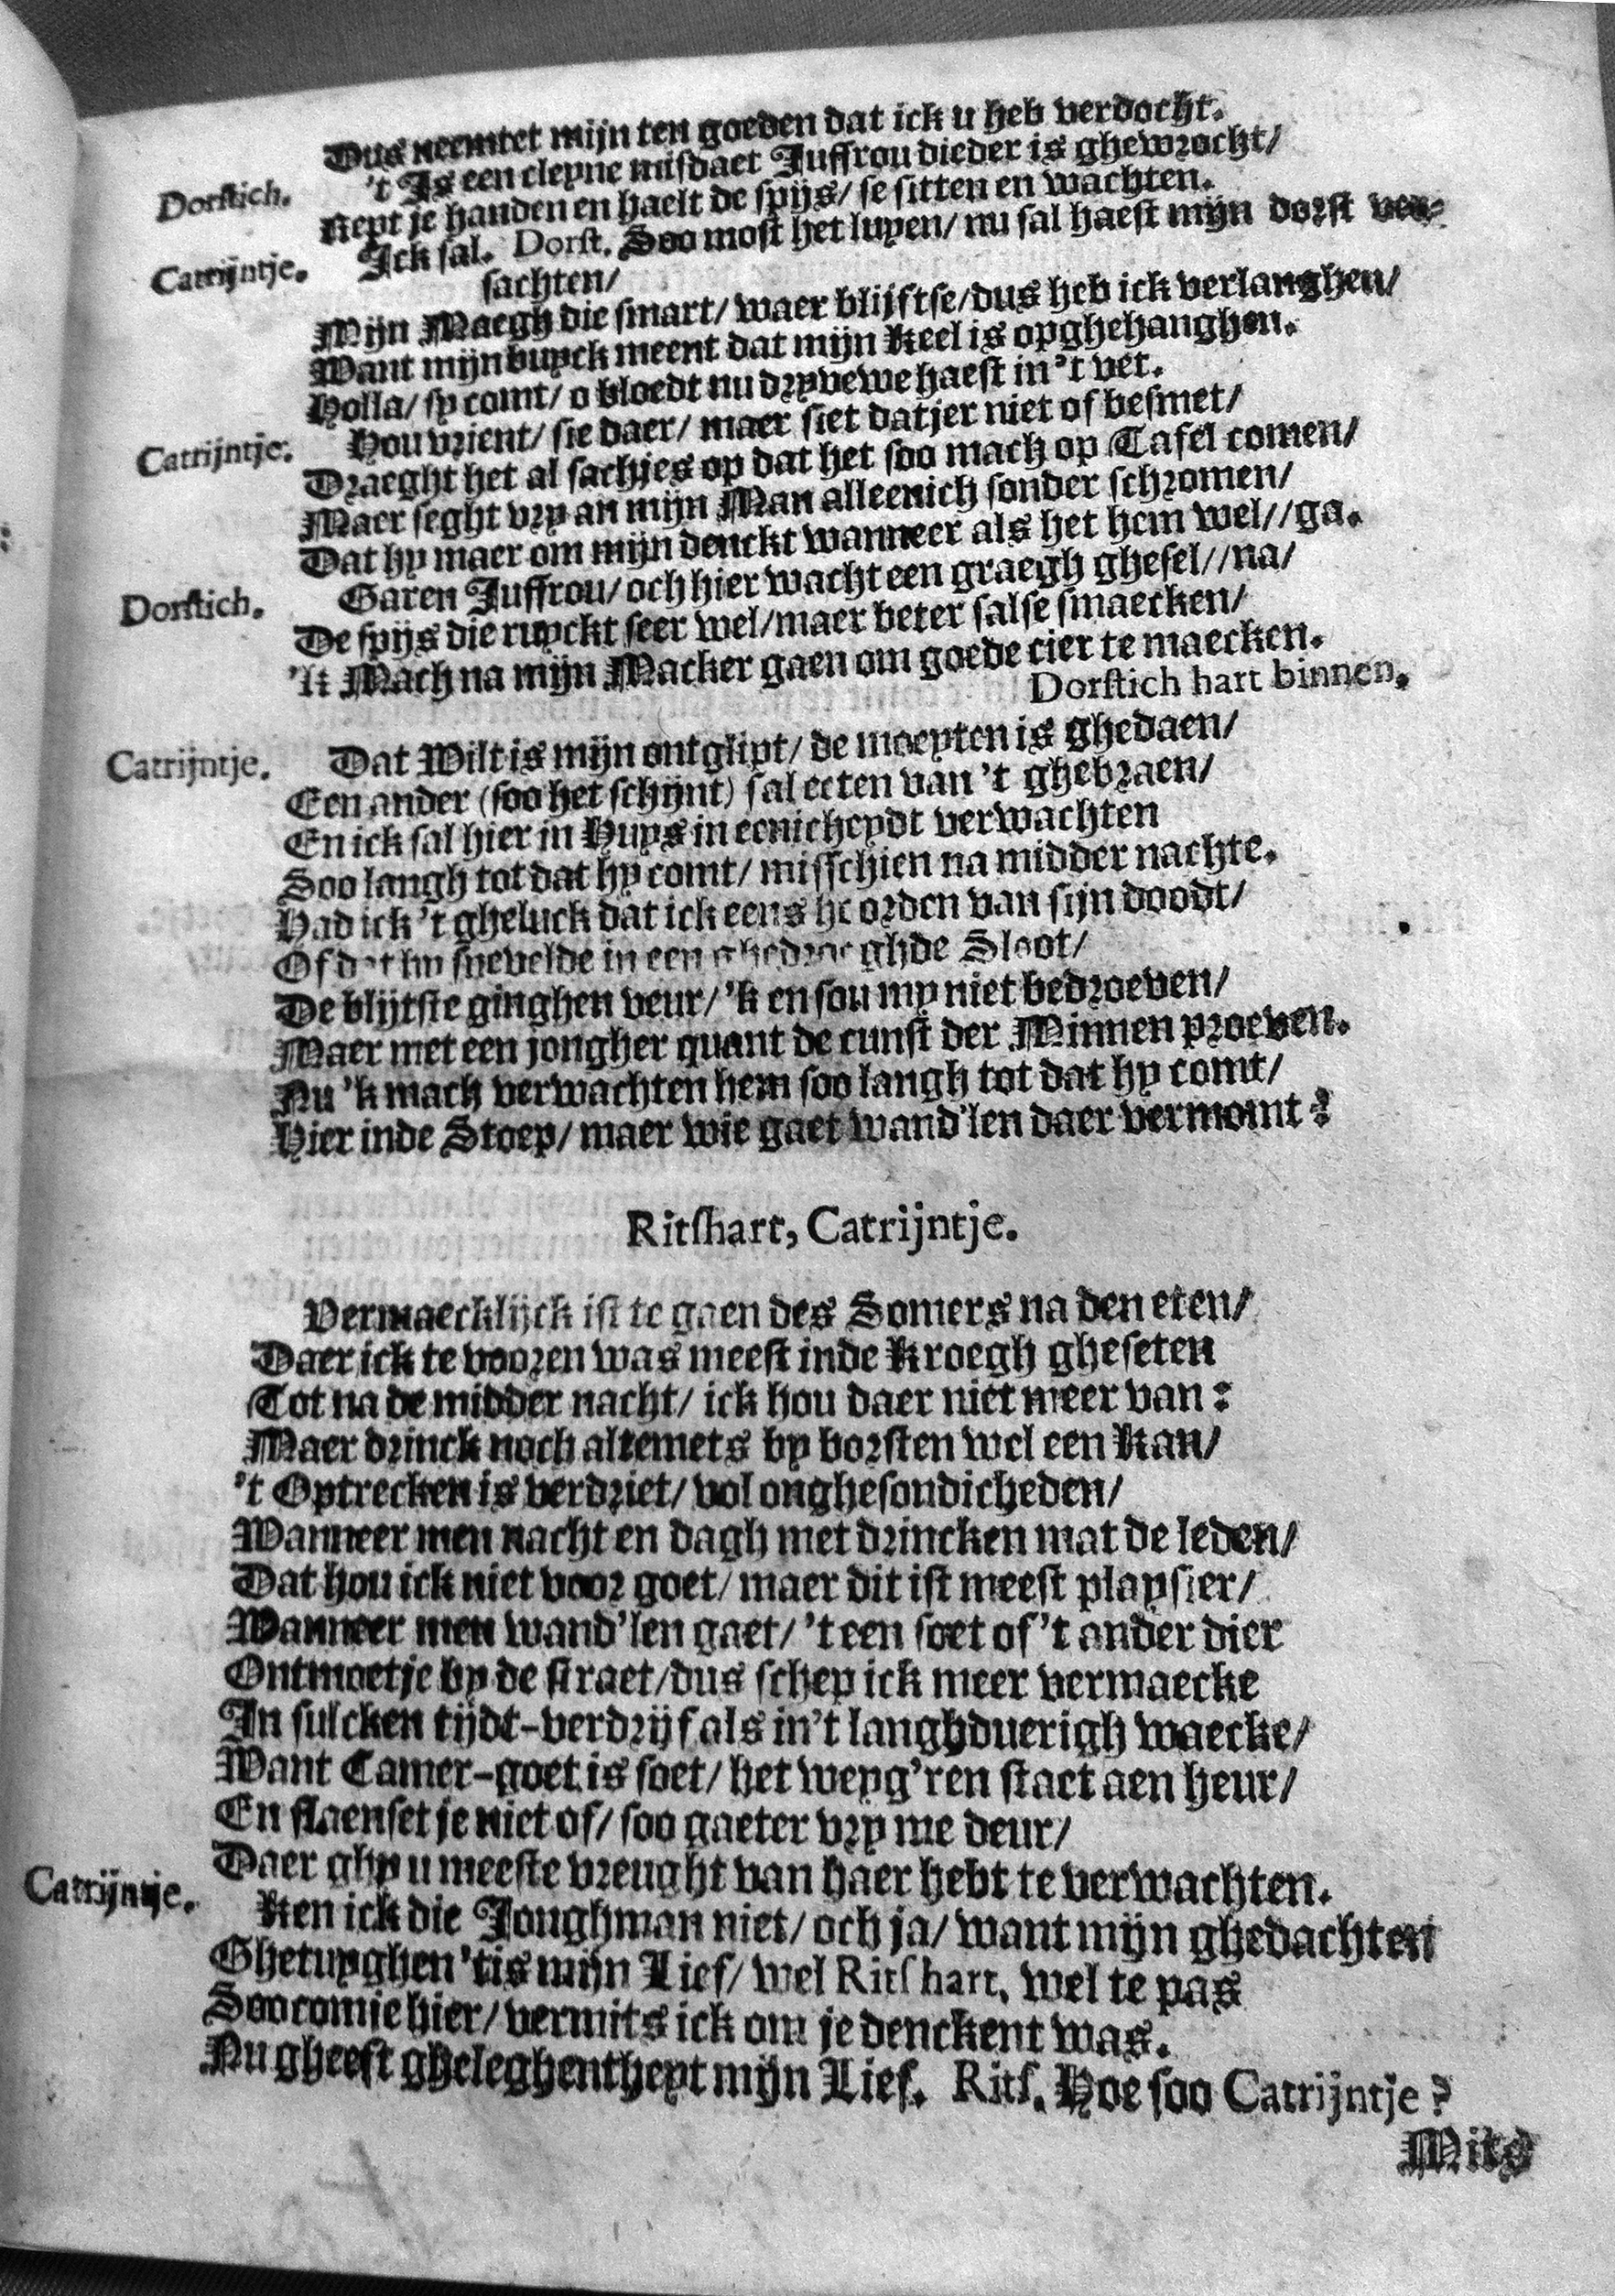 Dus neemtet mijn ten goeden dat ick u heb verdocht.
Dorstich. 't Is een cleyne misdaet Juffrou dieder is ghewrocht/
Rept je handen en haelt de spijs/ se sitten en wachten.
Catrijntje. Ick sal. Dorst. Soo most het luyen/ nu sal haest mijn dorst ver-
sachten/
Mijn Maegh die smart/ waer blijftse/ dus heb ick verlanghen/
Want mijn buyck meent dat mijn Keel is opghehanghen.
Holla/ sy comt/ o bloedt nu dryvewe haest in 't vet.
Catrijntje. Hou vrient/ sie daer/ maer siet datjer niet of besmet/
Draeght het al sachjes op dat het soo mach op Tafel comen/
Maer seght vry an mijn Man alleenich sonder schromen/
Dat hy maer om mijn denckt wanneer als het hem wel//ga.
Dorstich. Garen Juffrou/ och hier wacht een graegh ghesel//na/
De spijs die ruyckt seer wel/ maer beter salse smaecken/
'k Mach na mijn Macker gaen om goede cier te maecken.
Dorstich hart binnen.
Catrijntje. Dat Wilt is mijn ontglipt/ de moeyten is ghedaen/
Een ander (soo het schijnt) sal eeten van 't ghebraen/
En ick sal hier in Huys in eenicheydt verwachten
Soo langh tot dat hy comt/ misschien na midder nachte.
Had ick 't gheluck dat ick eens hoorden van sijn doodt/
Of dat hy snevelde in een ghedroeghde Sloot/
De blijtste ginghen veur/ 'k en sou my niet bedroeven/
Maer met een jongher quant de cunst der Minnen proeven.
Nu 'k mach verwachten hem soo langh tot dat hy comt/
Hier inde Stoep/ maer wie gaet wand'len daer vermomt?
Ritshart, Catrijntje.
Vermaecklijck ist te gaen des Somers na den eten/
Daer ick te vooren was meest inde Kroegh gheseten
Tot na de midder nacht/ ick hou daer niet meer van:
Maer drinck noch altemets by borsten wel een Kan/
't Optrecken is verdriet/ vol onghesondicheden/
Wanneer men nacht en dagh met drincken mat de leden/
Dat hou ick niet voor goet/ maer dit ist meest playsier/
Wanneer men wand'len gaet/ 't een soet of 't ander dier
Ontmoetje by de straet/ dus schep ick meer vermaecke
In sulcken tijdt-verdrijf als in 't langhduerigh waecke/
Want Camer-goet is soet/ het weyg'ren staet aen heur/
En slaenset je niet of/ soo gaeter vry me deur/
Daer ghy u meeste vreught van haer hebt te verwachten.
Catrijntje. Ken ick die Jonghman niet/ och ja/ want mijn ghedachten
Ghetuyghen 'tis mijn Lief/ wel Ritshart, wel te pas
Soo comje hier/ vermits ick om je denckent was.
Nu gheeft gheleghentheyt mijn Lief. Rits. Hoe soo Catrijntje?
Mits